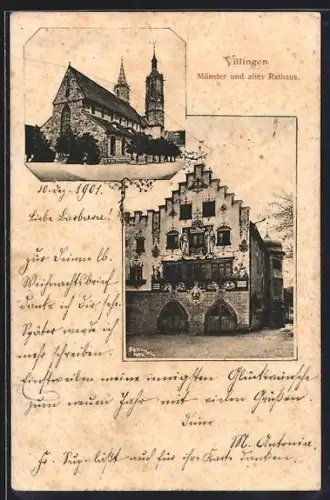 Villingen
Münster und altes Rathaus.
30. Dez. 1901.
Liebe Barbara!
Für Deinen lb.
Weihnachtsbrief
danke ich Dir sehr.
Später werde ich
mehr schreiben.
Einstweilen meine innigsten Glückwünsche
zum neuen Jahr mit vielen Grüßen.
Deine
M. Antonia.
Fr. Sup. läßt auch für ihre Karte danken.